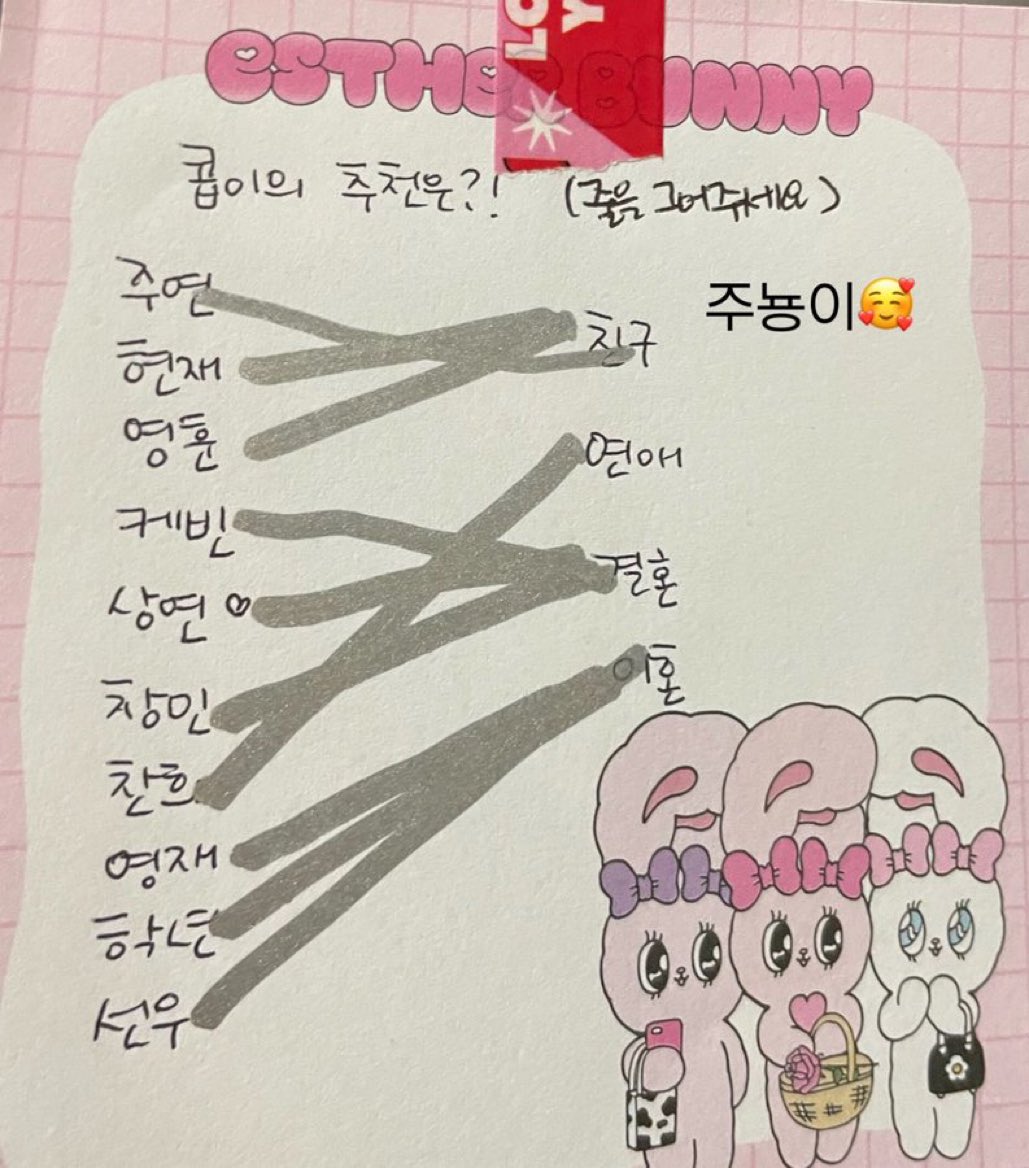 ESTHER BUNNY
LO
Y
쿱이의 추천은?! (줄을 그어주세요)
주연
친구
주뇽이🥰
현재
영훈
연애
케빈
결혼
상연♡
이혼
창민
찬희
영재
학년
선우